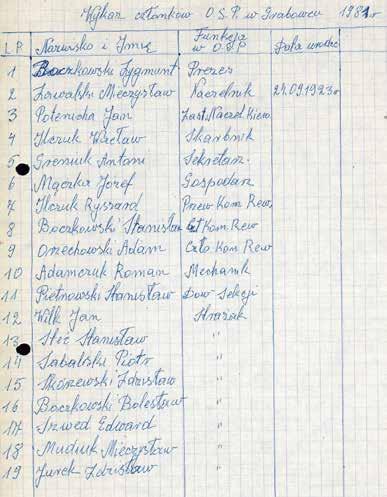 Wykaz członków O.S.P. w Grabowcu 1981r.
L.P. Nazwisko i Imię Funkcja w O.S.P Data urodz.
1 Boczkowski Zygmunt Prezes
2 Kowalski Mieczysław Naczelnik 24.09.1923r
3 Potenicha Jan Zast. Naczel Kiew.
4 Ilczuk Wacław Skarbnik
5 Greniuk Antoni Sekretarz.
6 Mączka Józef Gospodarz
7 Ilczuk Ryszard Przew Kom Rew.
8 Boczkowski Stanisław Czł Kom Rew.
9 Orzechowski Adam Czło. Kom Rew
10 Adamczuk Roman Mechanik
11 Pietnowski Stanisław Dow Sekcji
12 Wilk Jan Strażak
13 Steć Stanisław "
14 Sabalski Piotr "
15 Skórzewski Zdzisław "
16 Boczkowski Bolesław "
17 Szwed Edward "
18 Mudiuk Mieczysław "
19 Jurek Zdzisław "